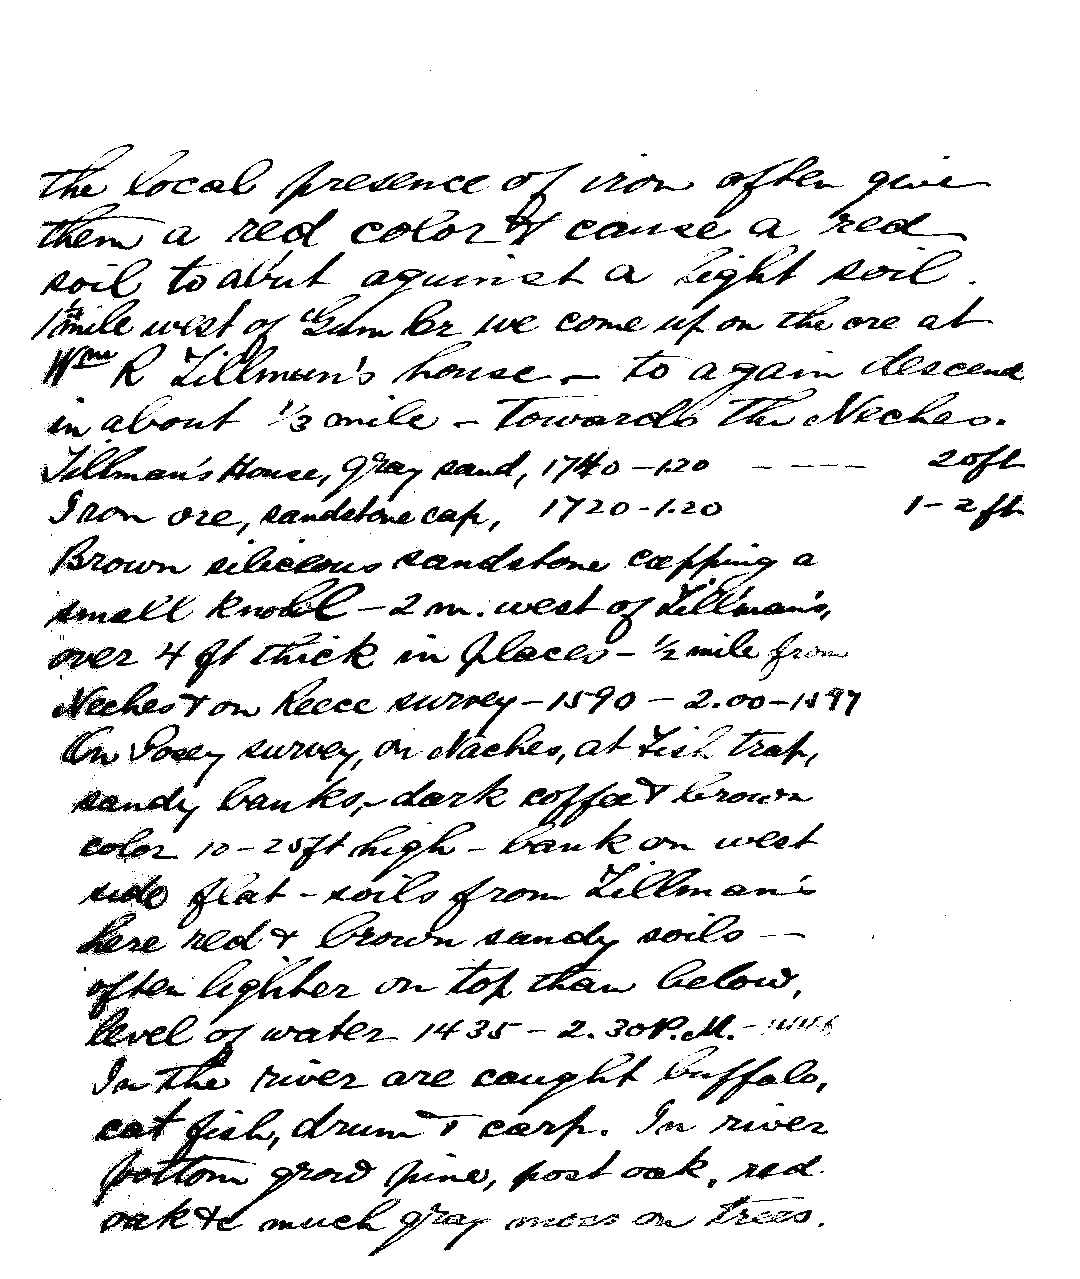 the local presence of iron often give
them a red color & cause a red
soil to abut against a light soil.
1½ mile west of Gum Cr we come upon the ore at
Wm R Tillman's house – to again descend
in about ⅓ mile – towards the Neches.
Tillman's House, gray sand, 1740 – 1.20 – – – – 20ft
Iron ore, sandstone cap, 1720 – 1.20 1–2 ft
Brown silicious sandstone capping a
small knoll – 2 m. west of Tillman's,
over 4 ft thick in places – ½ mile from
Neches & on Reece survey – 1590 – 2.00 – 1597
On Posey survey, on Naches, at Fish trap,
sandy banks, – dark coffee & brown
color 10–25ft high – bank on west
side flat – soils from Tillman's
here red & brown sandy soils –
often lighter on top than below,
level of water 1435 – 2.30 P.M. –
In the river are caught buffalo,
cat fish, drum & carp. In river
bottom grow pine, post oak, red
oak &c much gray moss on trees.